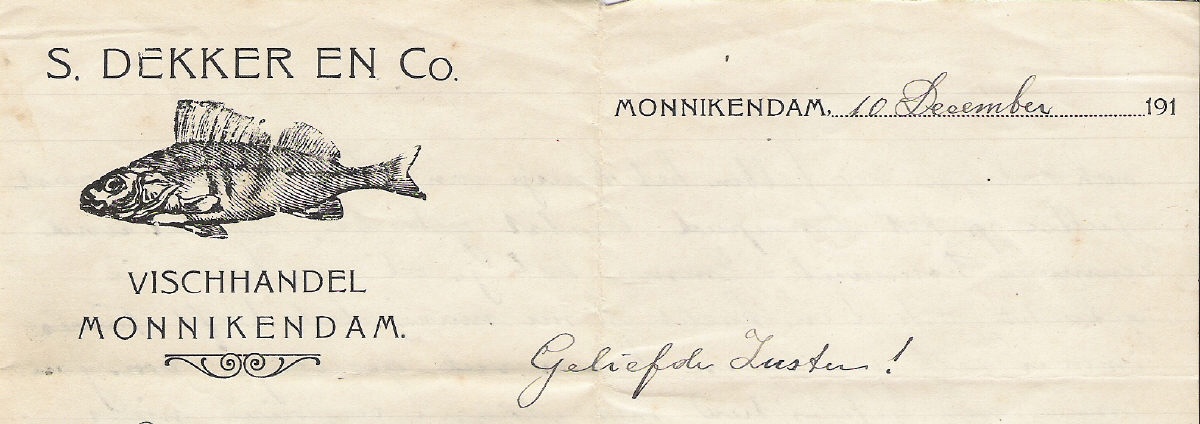 S. DEKKER EN Co.
MONNIKENDAM, 10 December 191
VISCHHANDEL
MONNIKENDAM.
Geliefde Zuster!